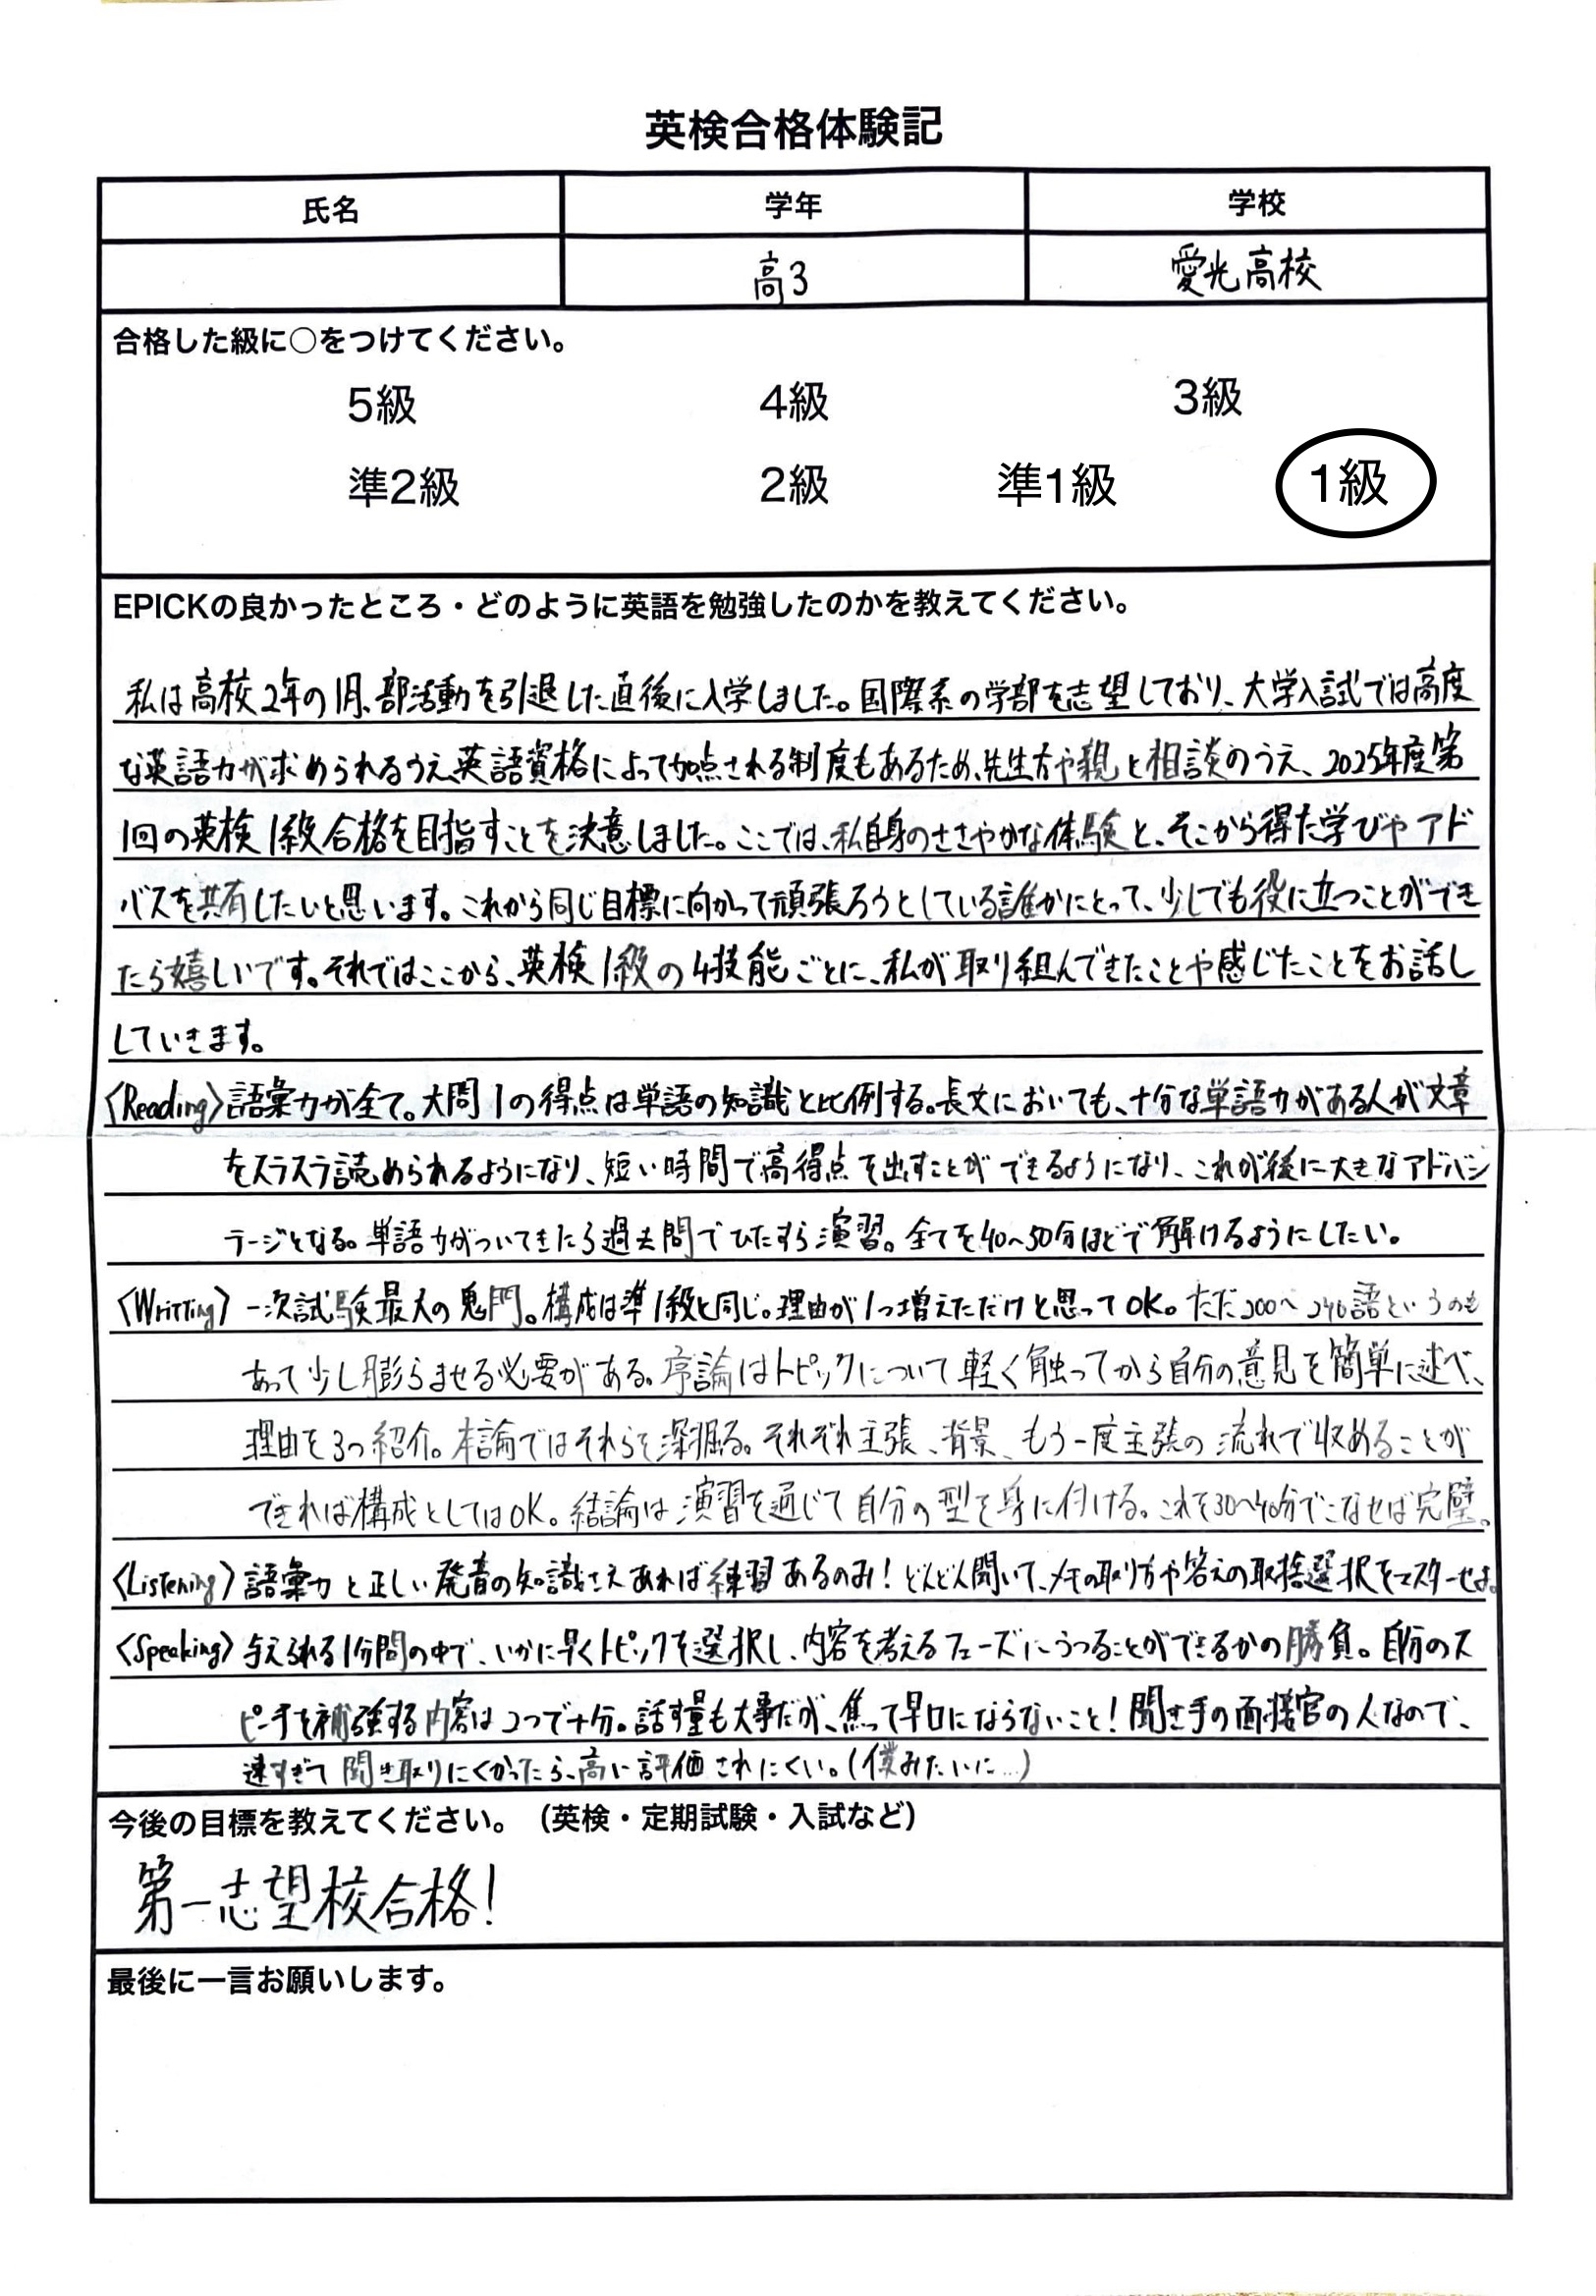 英検合格体験記
氏名 学年 学校
高3 愛光高校
合格した級に○をつけてください。
5級 4級 3級
準2級 2級 準1級 1級
EPICKの良かったところ・どのように英語を勉強したのかを教えてください。
私は高校2年の1月、部活動を引退した直後に入学しました。国際系の学部を志望しており、大学入試では高度
な英語力が求められるうえ、英語資格によって加点される制度もあるため、先生方や親と相談のうえ、2025年度第
1回の英検1級合格を目指すことを決意しました。ここでは、私自身のささやかな体験と、そこから得た学びやアド
バスを共有したいと思います。これから同じ目標に向かって頑張ろうとしている誰かにとって、少しでも役に立つことができ
たら嬉しいです。それではここから、英検1級の4技能ごとに、私が取り組んできたことや感じたことをお話し
していきます。
〈Reading〉語彙力が全て。大問1の得点は単語の知識と比例する。長文においても、十分な単語力がある人が文章
をスラスラ読められるようになり、短い時間で高得点を出すことができるようになり、これが後に大きなアドバン
テージとなる。単語力がついてきたら過去問でひたすら演習。全てを40〜50分ほどで解けるようにしたい。
〈Writting〉一次試験最大の鬼門。構成は準1級と同じ。理由が1つ増えただけと思ってOK。ただ200〜240語というのも
あって少し膨らませる必要がある。序論はトピックについて軽く触ってから自分の意見を簡単に述べ、
理由を3つ紹介。本論ではそれらを深掘る。それぞれ主張、背景、もう一度主張の流れで収めることが
できれば構成としてはOK。結論は演習を通じて自分の型を身に付ける。これを30〜40分でこなせば完璧。
〈Listening〉語彙力と正しい発音の知識さえあれば練習あるのみ！どんどん聞いて、メモの取り方や答えの取捨選択をマスターせよ。
〈Speaking〉与えられる1分間の中で、いかに早くトピックを選択し、内容を考えるフェーズにうつることができるかの勝負。自分のス
ピーチを補強する内容は2つで十分。話す量も大事だが、焦って早口にならないこと！聞き手の面接官の人なので、
速すぎて聞き取りにくかったら、高い評価されにくい。(僕みたいに…)
今後の目標を教えてください。（英検・定期試験・入試など）
第一志望校合格！
最後に一言お願いします。